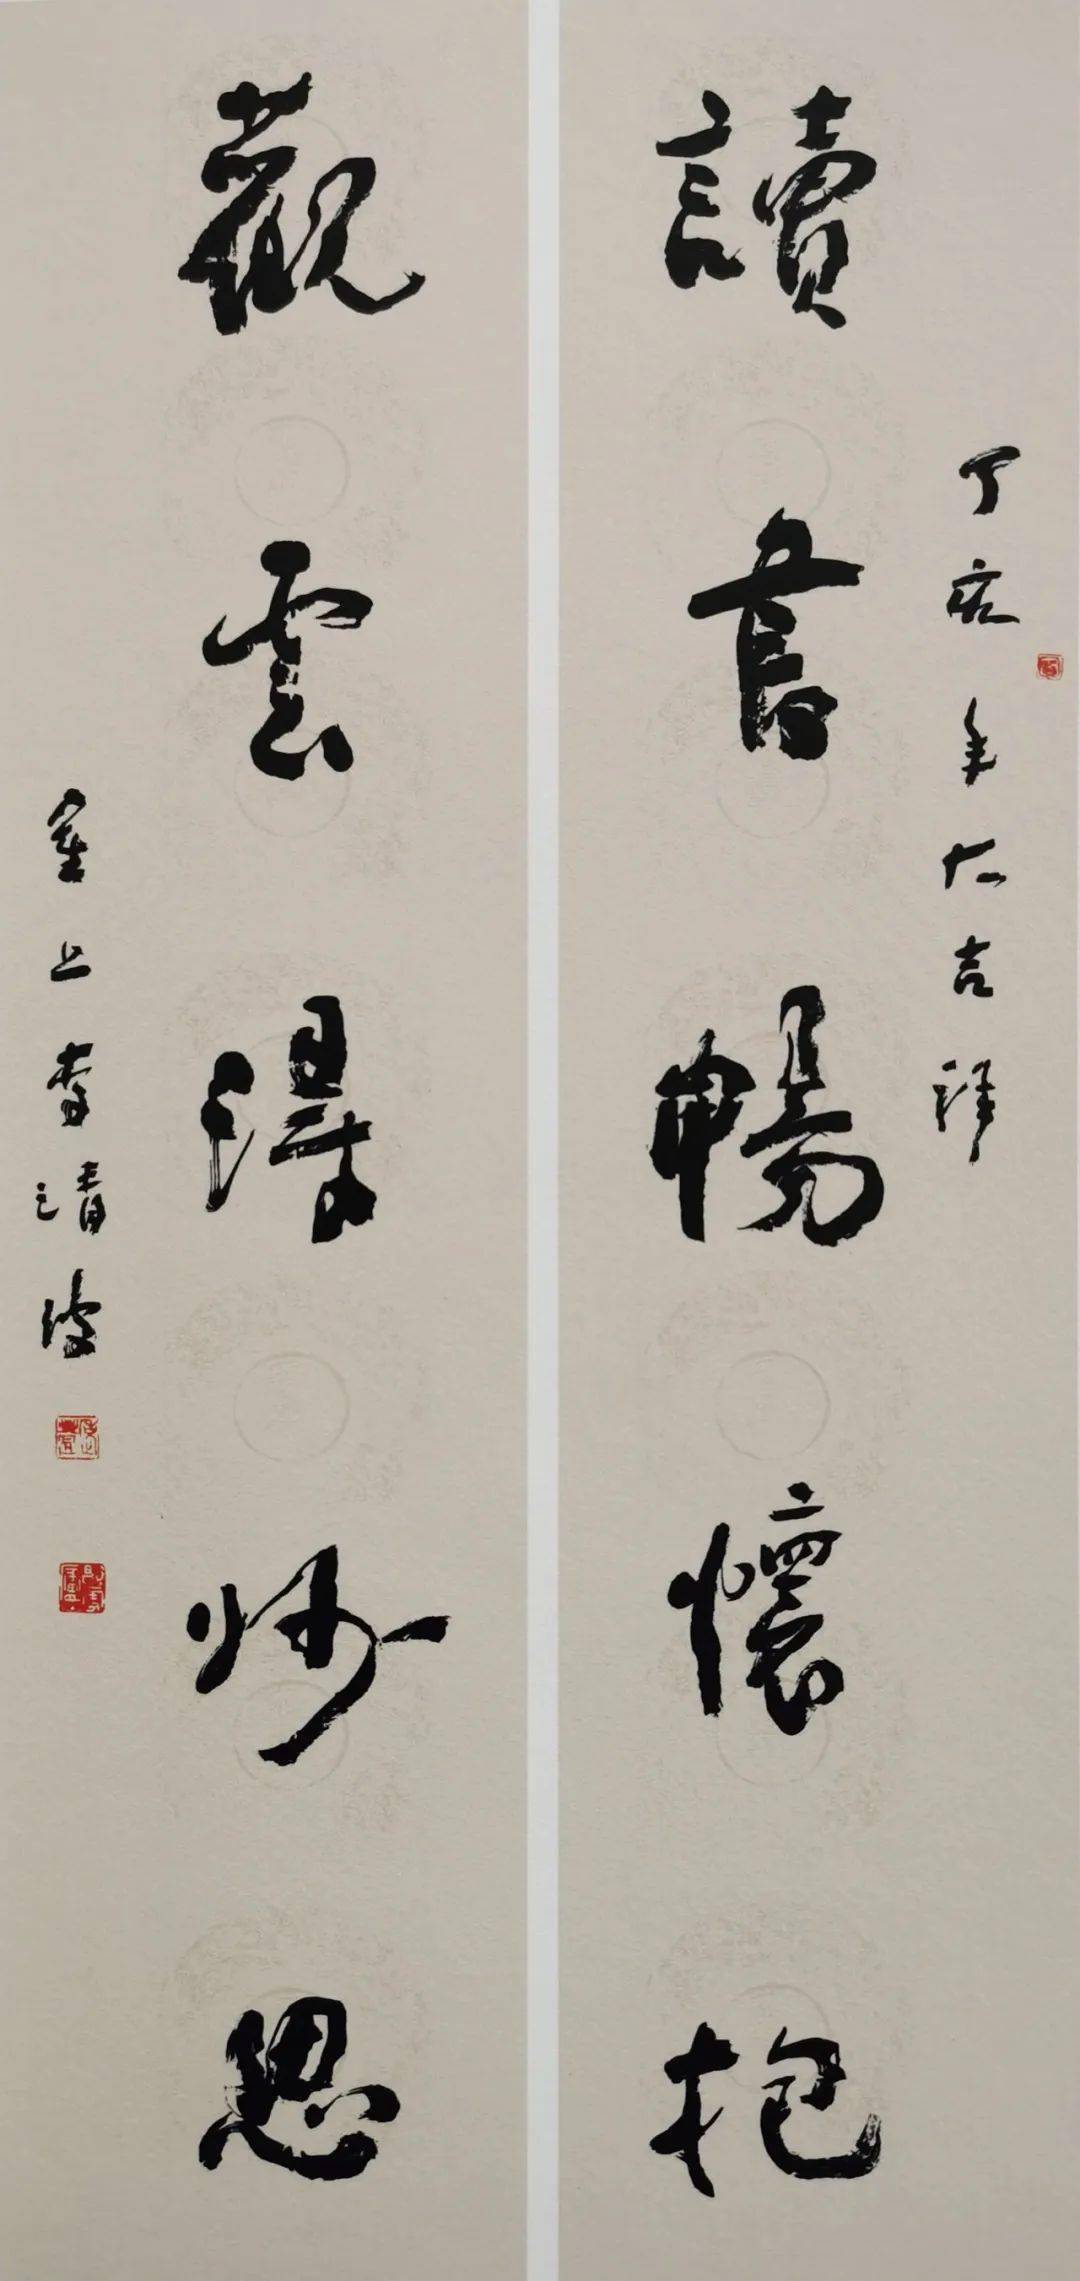 讀書暢懷抱
丁亥年大吉祥
觀雲得妙思
塞上李清波